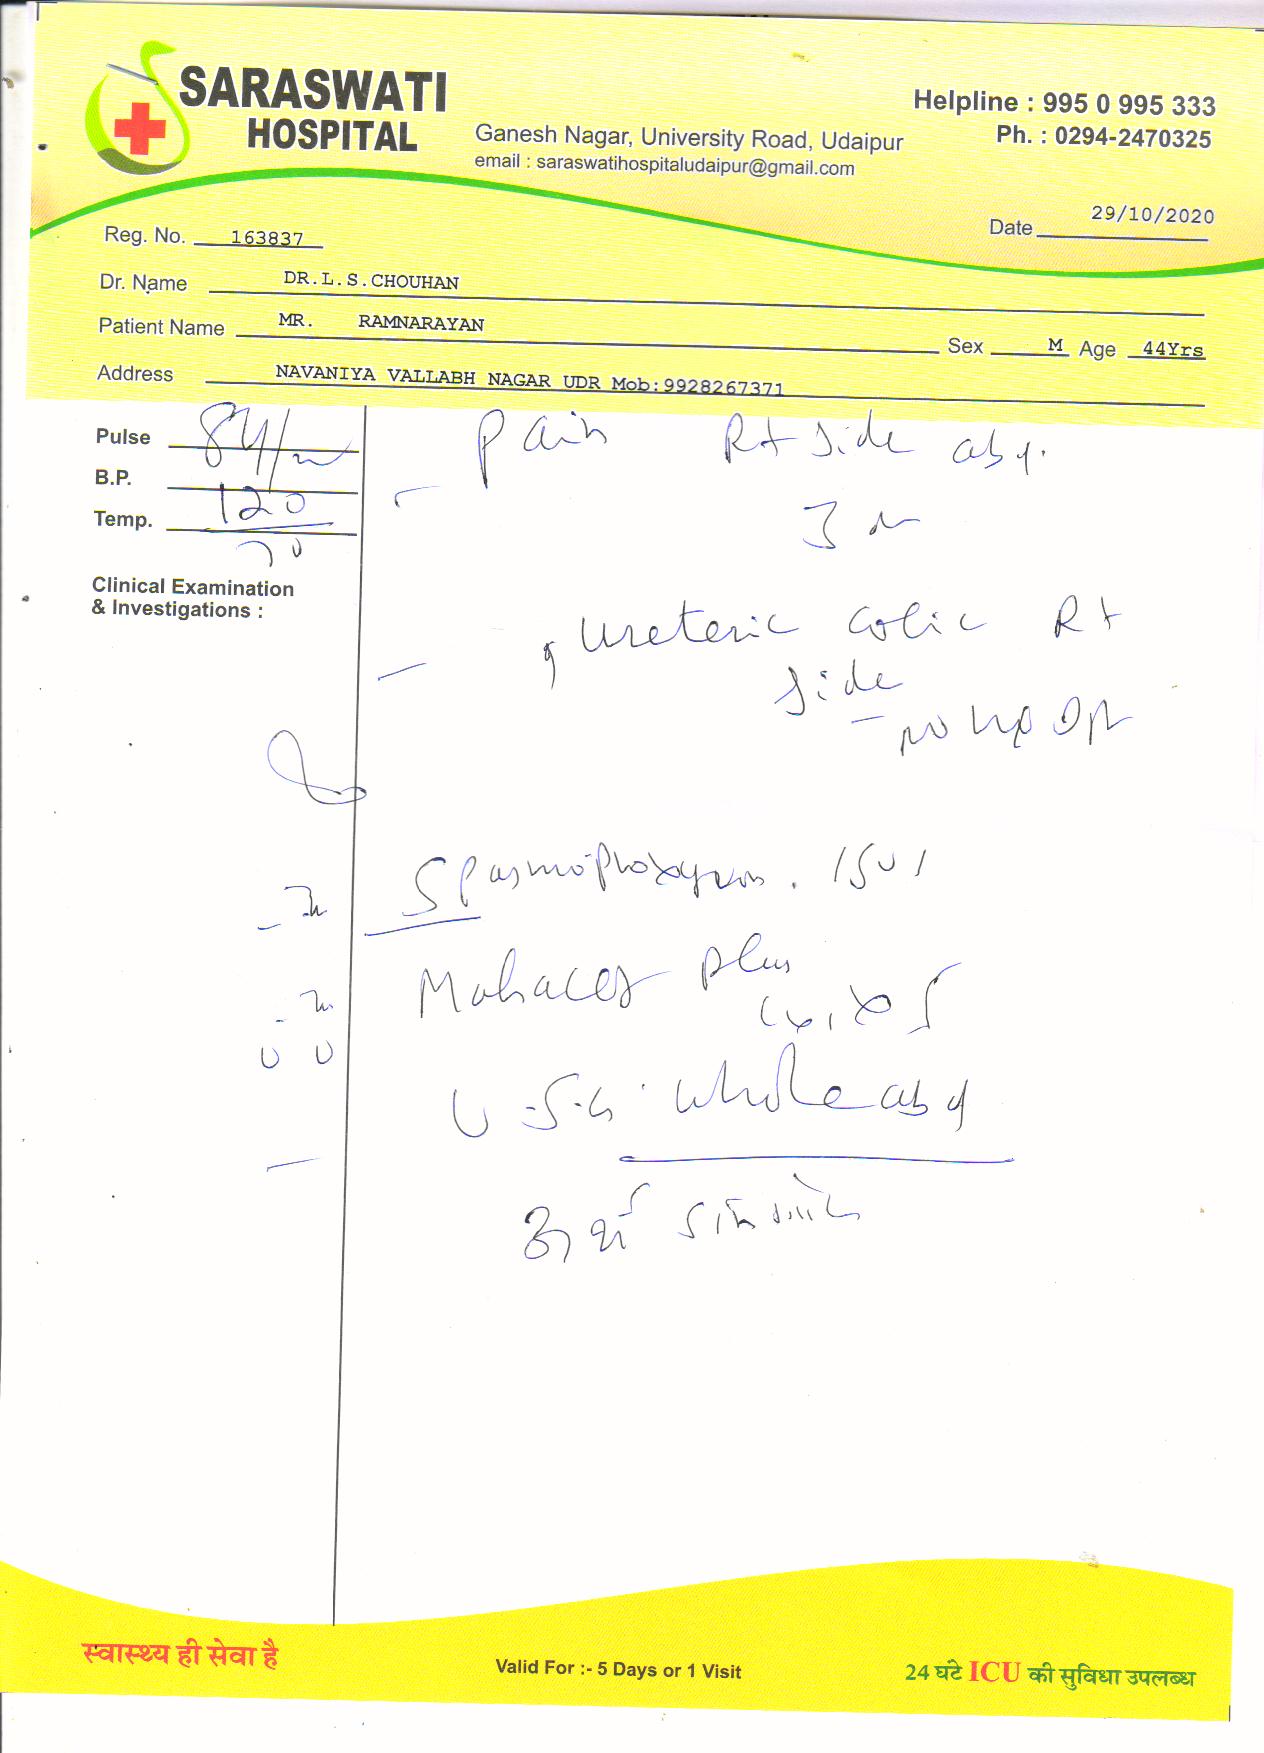 SARASWATI
HOSPITAL
Ganesh Nagar, University Road, Udaipur
email : saraswatihospitaludaipur@gmail.com
Helpline : 995 0 995 333
Ph. : 0294-2470325
Date 29/10/2020
Reg. No. 163837
Dr. Name DR.L.S.CHOUHAN
Patient Name MR. RAMNARAYAN
Sex M Age 44Yrs
Address NAVANIYA VALLABH NAGAR UDR Mob:9928267371
Pulse 84/
B.P.
Temp. 120
Clinical Examination
& Investigations :
Pain Rt side abd.
3
Ureteric colic Rt
side
Spasmo
plus
U.S.G. whole abd
स्वास्थ्य ही सेवा है
Valid For :- 5 Days or 1 Visit
24 घंटे ICU की सुविधा उपलब्ध